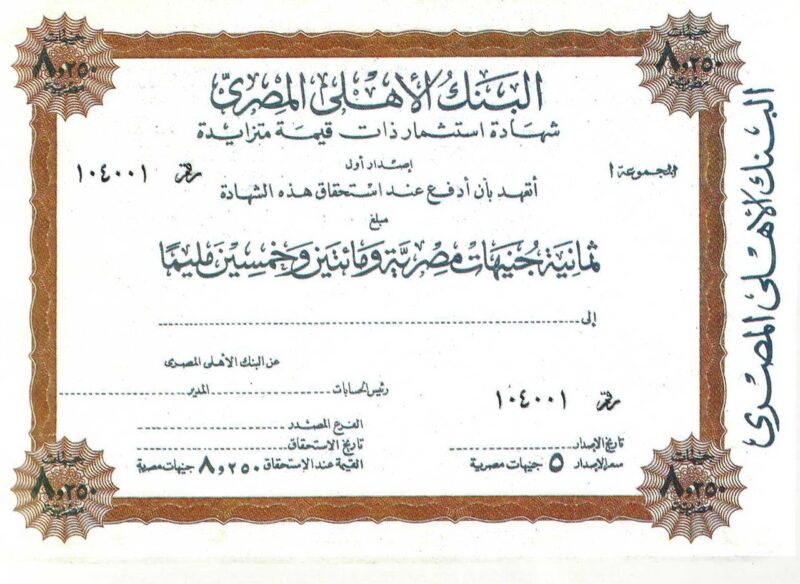 جنيهات ٨,٢٥٠ مصرية
جنيهات ٨,٢٥٠ مصرية
البنك الأهلى المصرى
شهادة استثمار ذات قيمة متزايدة
إصدار أول
المجموعة ا
رقم ١٠٤٠٠١
أتعهد بأن أدفع عند استحقاق هذه الشهادة
مبلغ
ثمانية جنيهات مصرية ومائتين وخمسين مليمًا
إلى
عن البنك الأهلى المصرى
رئيس الحسابات المدير
رقم ١٠٤٠٠١
الفرع المصدر
تاريخ الإصدار
تاريخ الاستحقاق
سعر الإصدار ٥ جنيهات مصرية
القيمة عند الإستحقاق ٨,٢٥٠ جنيهات مصرية
جنيهات ٨,٢٥٠ مصرية
جنيهات ٨,٢٥٠ مصرية
البنك الأهلى المصرى